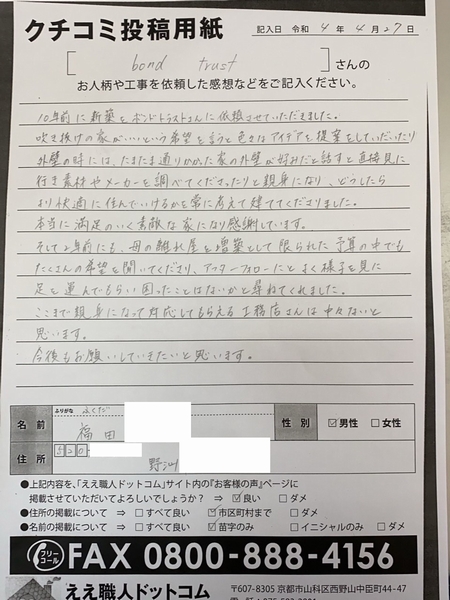 クチコミ投稿用紙
記入日 令和 4 年 4 月 27 日
[ bond trust ] さんの
お人柄や工事を依頼した感想などをご記入ください。
10年前に新築をボンドトラストさんに依頼させていただきました。
吹き抜けの家がいいという希望を言うと色々なアイデアを提案をしていだいたり
外壁の時には、たまたま通りかかった家の外壁が好みだと話すと直接見に
行き素材やメーカーを調べてくださったりと親身になり、どうしたら
より快適に住んでいけるかを常に考えて建ててくださりました。
本当に満足のいく素敵な家になり感謝しています。
そして2年前にも、母の離れ屋を増築として限られた予算の中でも
たくさんの希望を聞いてくださり、アフターフォローにとよく様子を見に
足を運んでもらい困ったことはないかと尋ねてくれました。
ここまで親身になって対応してもらえる工務店さんは中々ないと
思います。
今後もお願いしていきたいと思います。
ふりがな ふくだ
名前 福田 性別 ☑男性 □女性
住所 520-
野洲
●上記内容を、「ええ職人ドットコム」サイト内の『お客様の声』ページに
掲載させていただいてよろしいでしょうか? ⇒ ☑良い □ダメ
●住所の掲載について ⇒ □すべて良い ☑市区町村まで □ダメ
●名前の掲載について ⇒ □すべて良い ☑苗字のみ □イニシャルのみ □ダメ
フリーコール FAX 0800-888-4156
ええ職人ドットコム 〒607-8305 京都市山科区西野山中臣町44-47